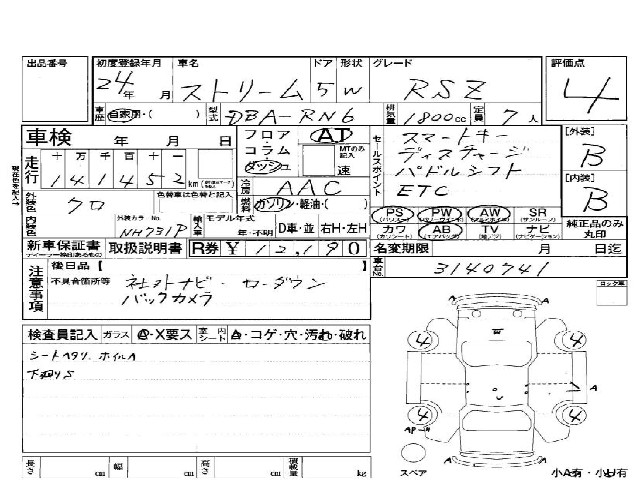 出品番号 初度登録年月 車名 ドア 形状 グレード 評価点
24年 月 ストリーム 5 W RSZ 4
車歴 自家用・( ) 型式 DBA-RN6 排気量 1800cc 定員 7人
車検 年 月 日 フロア・コラム AT セールスポイント スマートキー [外装]
走行 十 万 千 百 十 一 ダッシュ MTのみ記入 速 ディスチャージ B
141452 km パドルシフト [内装]
冷房 AAC ETC B
外装色 クロ 色替車は色替と記入 燃料 ガソリン・軽油( ) PS PW AW SR 純正品のみ丸印
内装色 外装カラーNo NH731P 輸入車 モデル年式 年・不明 D車・並 右H・左H カワ AB TV ナビ
新車保証書 取扱説明書 R券 ¥12,190 名変期限 月 日迄
注意事項 後日品【 】 車台No 3140741
不具合箇所等 社外ナビ・ローダウン ロック車
バックカメラ
検査員記入 ガラス A・X要ス 室内シート A・コゲ・穴・汚れ・破れ
シートヘタリ ホイルA
下廻りS
A
4 4
A A
4 4
A
長さ cm 幅 cm 高さ cm 積載量 kg スペア 小A有・小U有